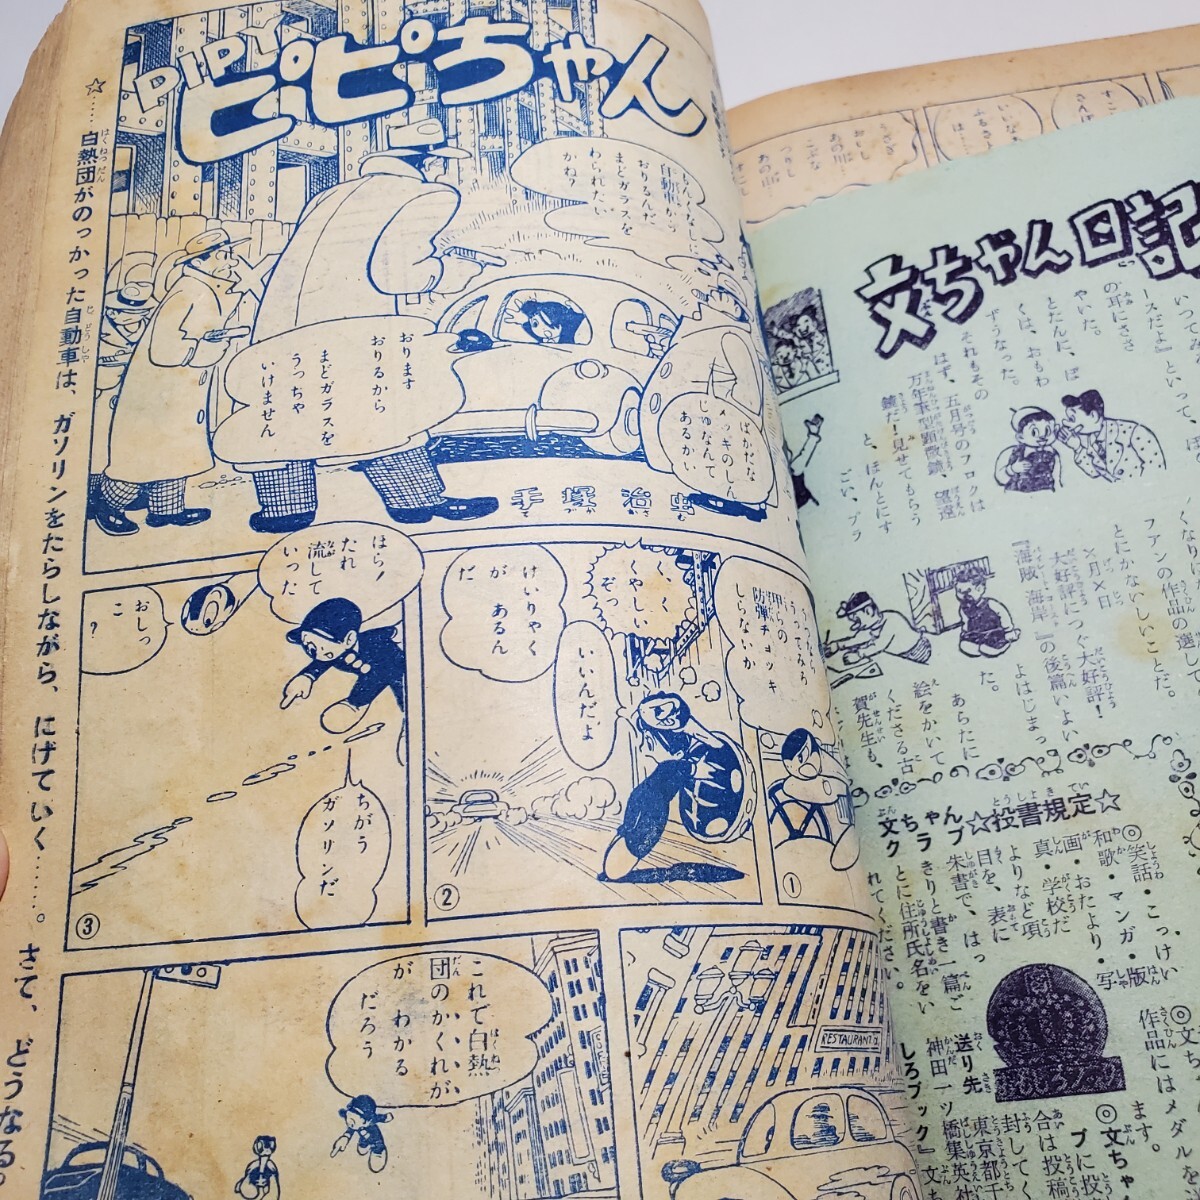 PIPY
ピピちゃん
☆……白熱団がのっかった自動車は、ガソリンをたらしながら、にげていく……。さて、どうなる。
おりるんだ
まどガラスを
わられたい
かね?
おります
おりるから
まどガラスを
うっちゃ
いけません
ばかだな
メッキのしん
じゅなんて
あるかい
手塚治虫
防弾チョッキ
しらないか
①
く、く
くやしい
ぞっ
いいんだよ
けいりゃく
が あるん
だ
②
ほら!
たれ
流して
いった
おしっ
こ?
ちがう
ガソリンだ
③
RESTAURANT
これで白熱
団のかくれが
が わかる
だろう
文ちゃん日記
いつてみ
ースだよ』といって、ぼく
の耳にささ
やいた。
とたんに、ぼ
くは、おもわ
ずうなった。
それもその
はず、五月号のフロクは
万年筆型顕微鏡、望遠
鏡だ!見せてもらう
と、ほんとにす
ごい、ブラ
くなりけ
ファンの作品の選して
とにかないしいことだ。
×月×日
大好評につぐ大好評!
『海賊海岸』の後篇いよい
よはじまっ
た。
あらたに
絵をかいて
くださる古
賀先生も、
☆投書規定☆
◎笑話・こっけい
和歌・マンガ・版
画・おたより・写
真・学校だ
よりなど項
目を、表に
朱書で、はっ
きりと書き一篇ご
とに住所氏名をい
れてください。
文ちゃんブ
ク ラ
おもしろブック
送り先
神田一ツ
橋集英社
しろブック』文
◎文ち
作品にはメダルを
ます。
◎文ちゃ
ブに投
合は投稿
封してく
東京都千